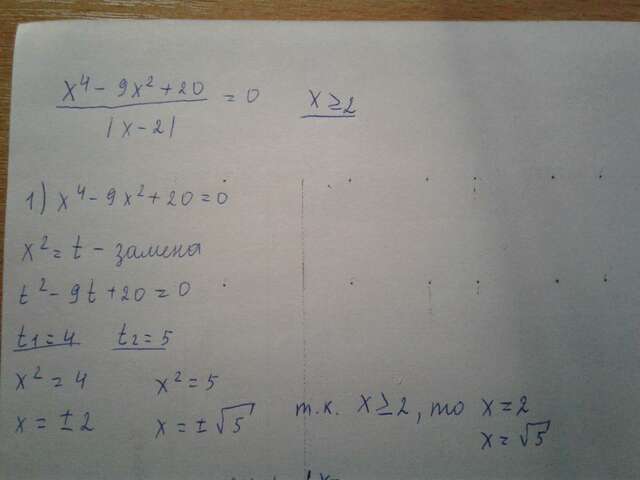 x⁴ - 9x² + 20 / |x - 2| = 0    x ≥ 2
1) x⁴ - 9x² + 20 = 0
x² = t - замена
t² - 9t + 20 = 0
t₁ = 4    t₂ = 5
x² = 4    x² = 5
x = ±2    x = ±√5    т.к. x ≥ 2, то x = 2
x = √5